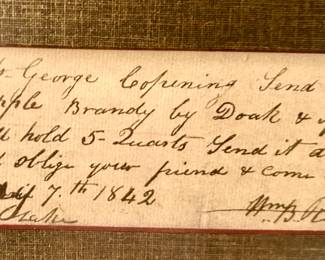 George Copening Send
Apple Brandy by Doak &
hold 5 Quarts Send it
oblige your friend & come
7th 1842
Wm B.